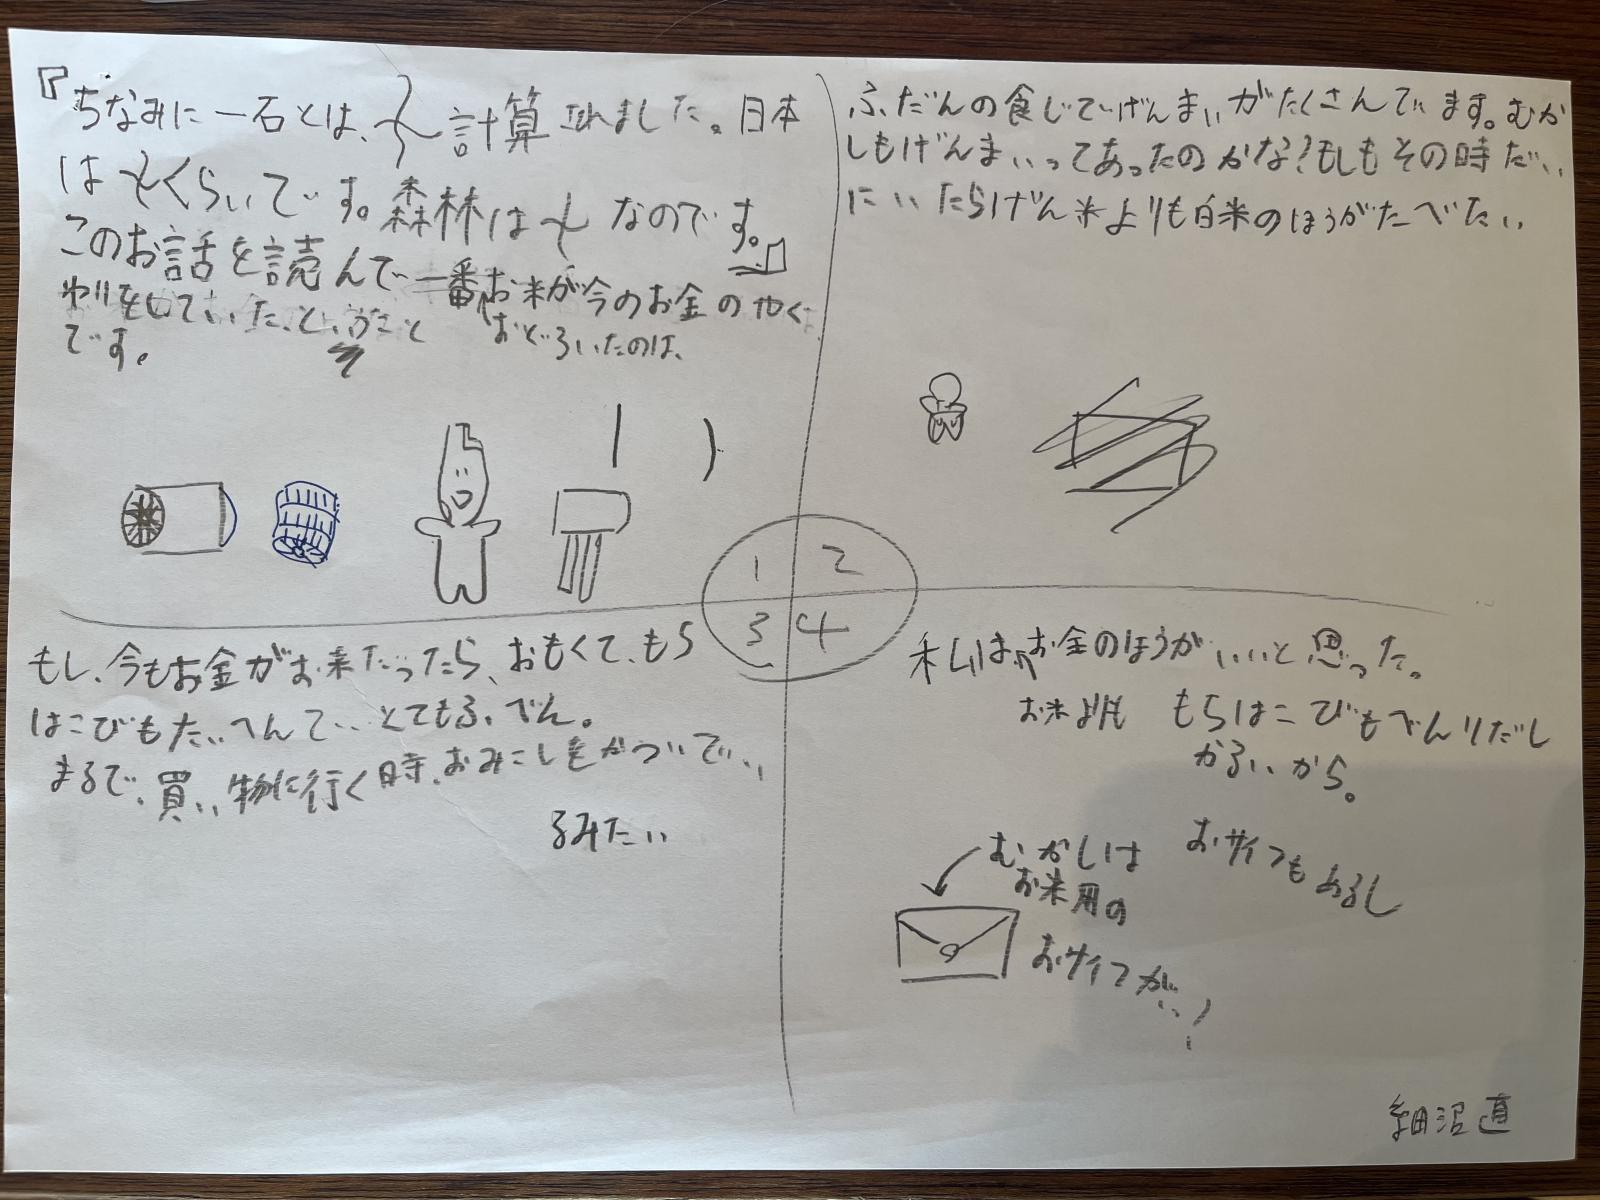 『ちなみに一石とは、 計算されました。日本
は くらいです。森林は なのです。』
このお話を読んで一番お米が今のお金のやく
わりをしていたということ おどろいたのは、
です。
ふだんの食じでげんまいがたくさんでます。むか
しもげんまいってあったのかな?もしもその時だい
にいたらげん米よりも白米のほうがたべたい
1 2
3 4
もし、今もお金がお米だったら、おもくて、もち
はこびもたいへんで、とてもふべん。
まるで、買い物に行く時、おみこしをかついでい
るみたい
私は お金のほうがいいと思った。
お米より もちはこびもべんりだし
かるいから。
おサイフもあるし
むかしは
お米用の
おサイフが…!
細沼直